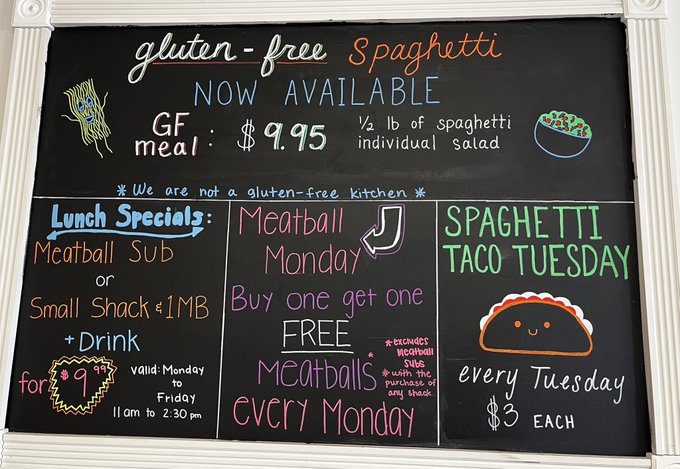 gluten-free Spaghetti
NOW AVAILABLE
GF meal: $9.95
1/2 lb of spaghetti
individual salad
* We are not a gluten-free kitchen *
Lunch Specials:
Meatball Sub
or
Small Shack & 1MB
+ Drink
for $9.99
valid: Monday
to
Friday
11am to 2:30pm
Meatball
Monday
Buy one get one
FREE
Meatballs*
every Monday
*excludes
meatball
subs
*with the
purchase of
any shack
SPAGHETTI
TACO TUESDAY
every Tuesday
$3 EACH